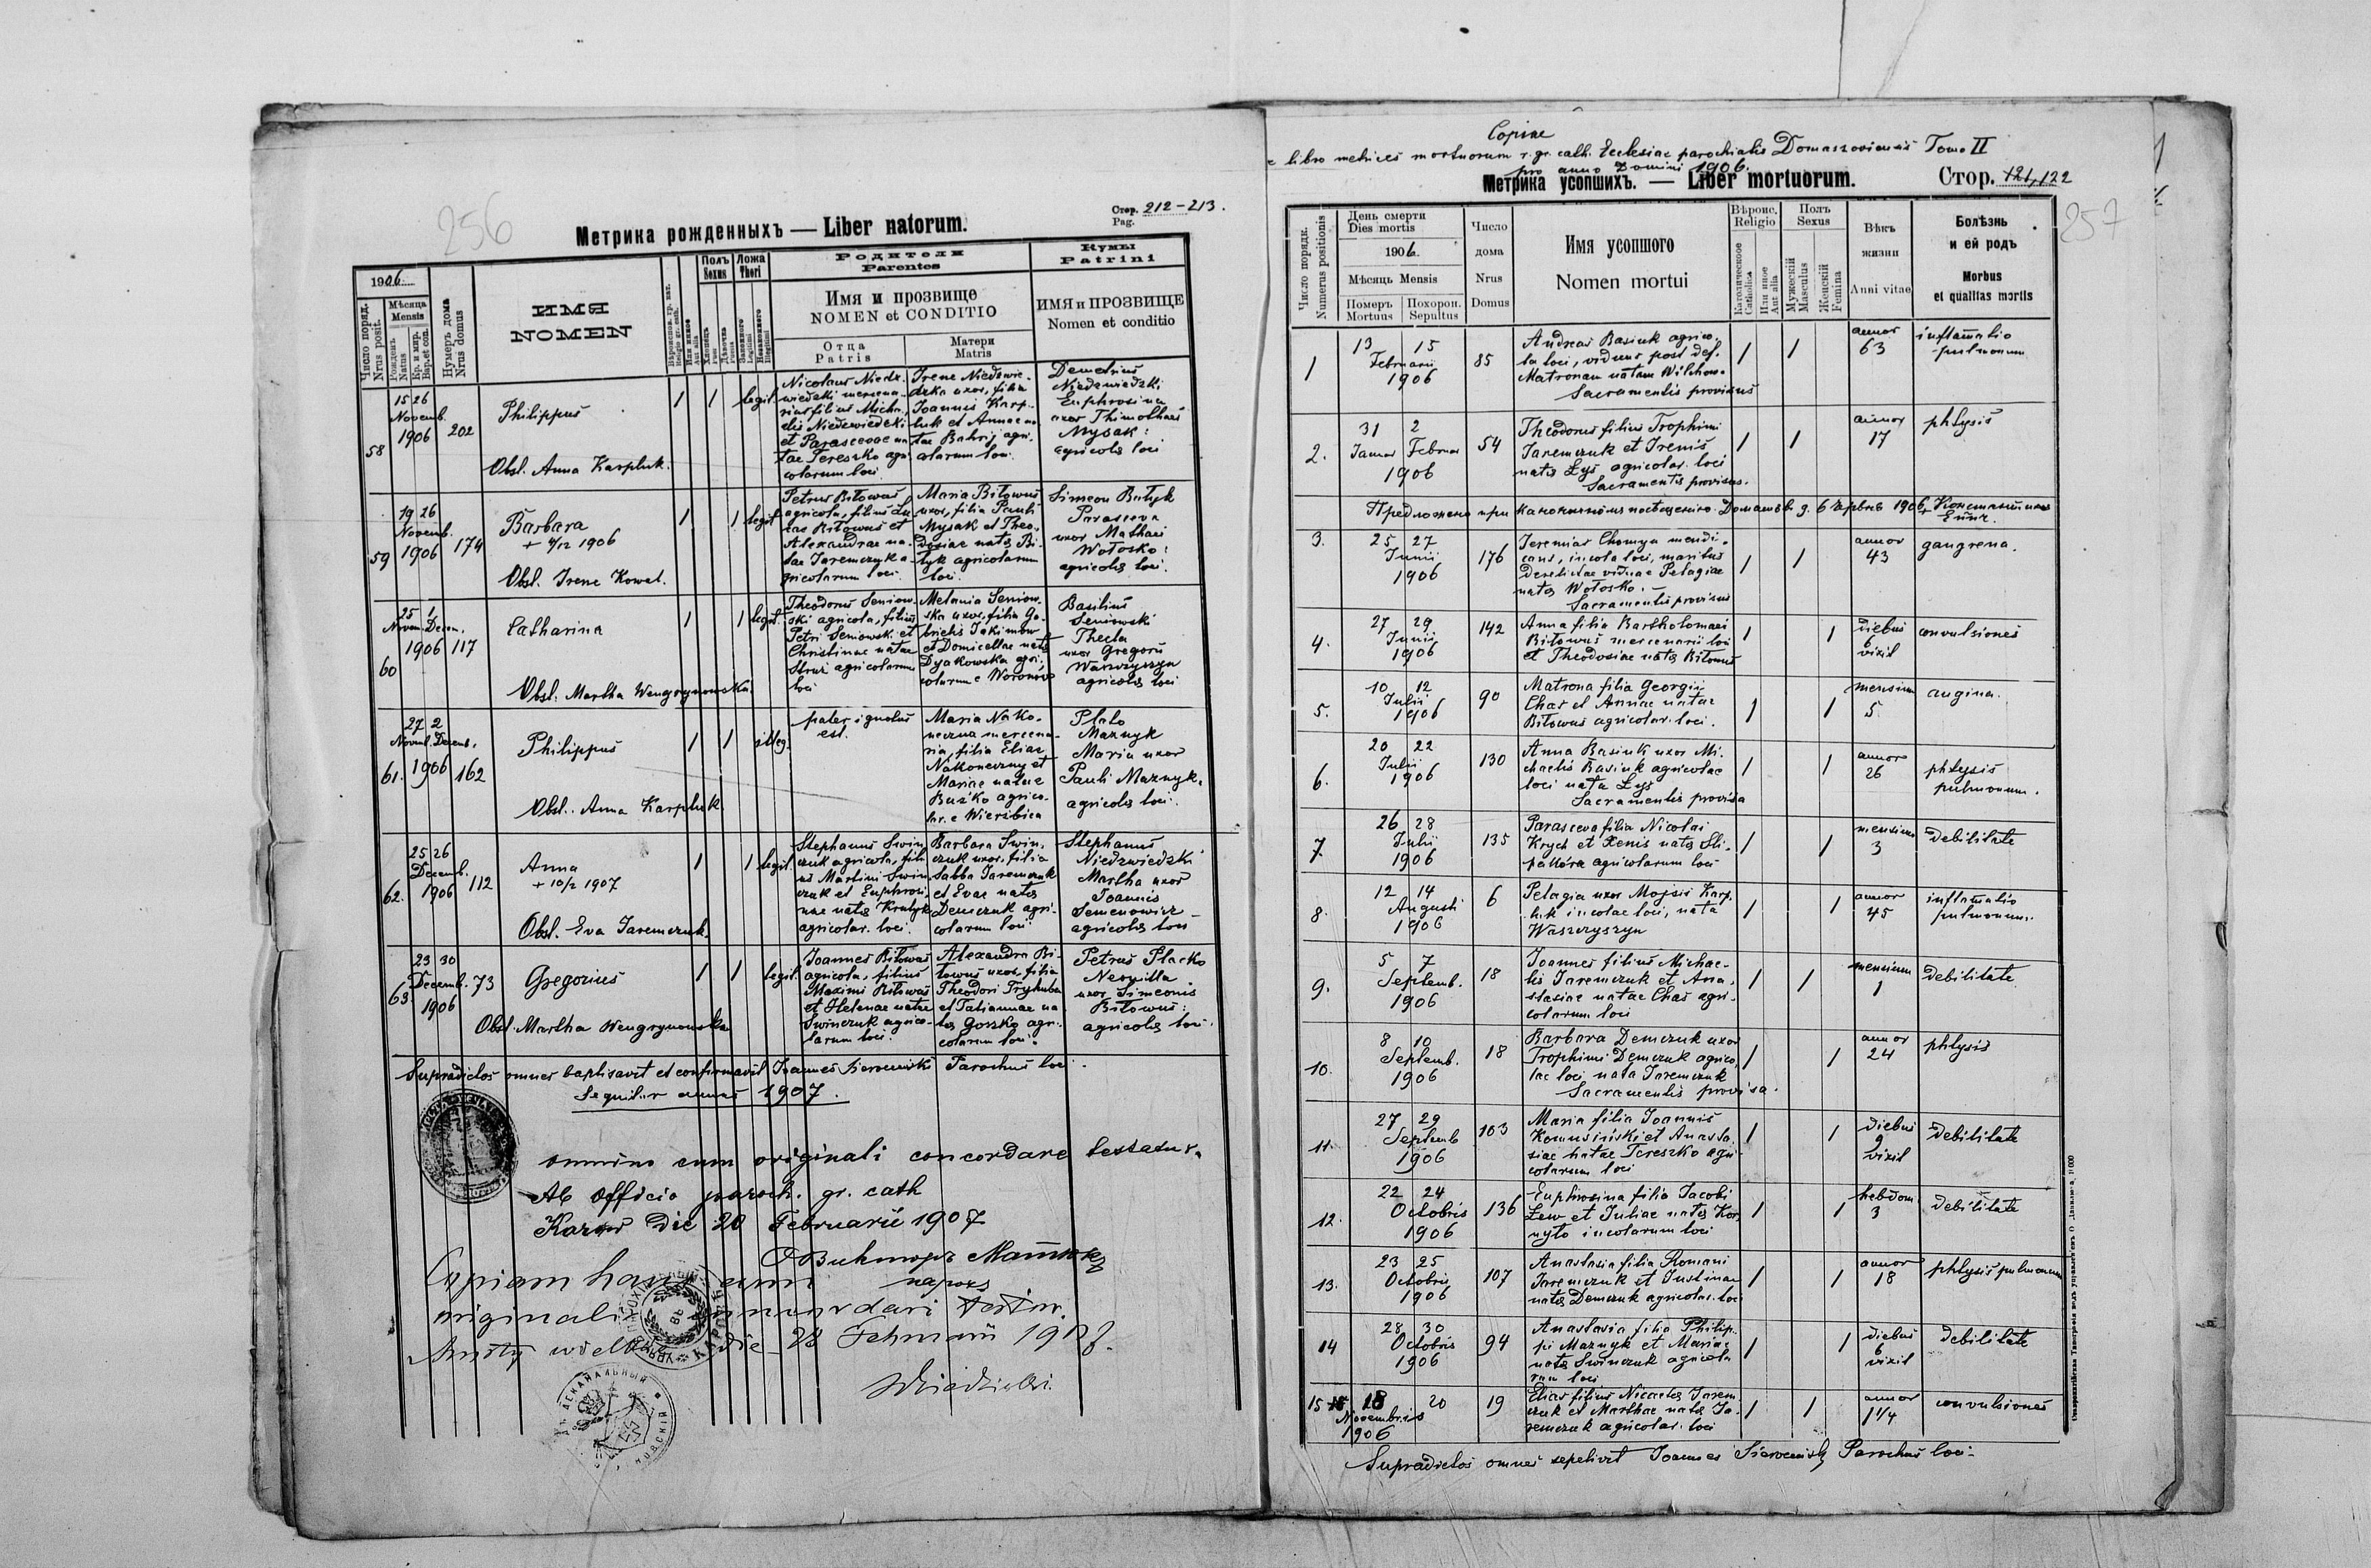 256
Стор. 212-213.
Pag.
Метрика рожденныхъ — Liber natorum.
1906
Число поряд.
Nrus posit.
Мѣсяца
Mensis
Рожденъ
Natus
Кр. и мир.
Bap. et conf.
Нумеръ дома
Nrus domus
ИМЯ
NOMEN
Полъ
Sexus
Ложа
Thori
Родители
Parentes
Имя и прозвище
NOMEN et CONDITIO
Отца
Patris
Матери
Matris
Кумы
Patrini
ИМЯ и ПРОЗВИЩЕ
Nomen et conditio
58
15 26
Novemb.
1906
202
Philippus
Obst. Anna Karpluk.
1 1 legit.
Nicolaus Niedz-
wiedzki mercena-
rius filius Micha-
elis Niedzwiedzki
et Parascevae na-
tae Tereszko agri-
colarum loci
Irene Niedzwie-
dzka uxor, filia
Joannis Karp-
luk et Annae na-
tae Bahrij agri-
colarum loci.
Demetrius
Niedzwiedzki
Euphrosina
uxor Thimothaei
Mysak:
agricolae loci
59
19 26
Novemb.
1906
174
Barbara
+ 4/12 1906
Obst. Irene Kowal.
1 1 legit.
Petrus Bitowus
agricola, filius Lu-
cae Bitowus et
Alexandrae na-
tae Jaremczyk a-
gricolarum loci.
Maria Bitowus
uxor, filia Pauli
Mysak et Theo-
dosiae natae Bi-
tyk agricolarum
loci.
Simeon Butyk
Parasceva
uxor Mathaei
Wotosko:
agricolae loci.
60
25 1
Novem. Decem.
1906
117
Catharina
Obst. Martha Wengrynowska.
1 1 legit.
Theodorus Seniow-
ski agricola, filius
Petri Seniowski et
Christinae natae
Struz agricolarum
loci
Melania Seniow-
ska uxor, filia Ga-
brielis Jakimow
et Domicellae natae
Dyakowska agri-
colarum e Woronow
Basilius
Seniowski
Thecla
uxor Gregorii
Waszczyszyn
agricolae loci
61.
27 2
Novemb. Decemb.
1906
162
Philippus
Obst. Anna Karpluk
1 1 illeg.
pater ignotus
est.
Maria Nako-
neczna mercena-
ria, filia Eliae
Nakoneczny et
Mariae natae
Bużko agrico-
lar. e Wierzbica
Plato
Maznyk
Maria uxor
Pauli Maznyk.
agricolae loci.
62.
25 26
Decemb.
1906
112
Anna
+ 10/2 1907
Obst. Eva Jaremczuk.
1 1 legit.
Stephanus Swin-
czuk agricola, fili-
us Martini Swin-
czuk et Euphrosi-
nae natae Krutyk
agricolar. loci.
Barbara Swin-
czuk uxor, filia
Sabba Jaremczuk
et Evae natae
Demczuk agri-
colarum loci.
Stephanus
Niedzwiedzki
Martha uxor
Joannis
Semenowicz
agricolae loci
63.
23 30
Decemb.
1906
73
Gregorius
Obst. Martha Wengrynowska
1 1 legit.
Joannes Bitowus
agricola, filius
Maximi Bitowus
et Helenae natae
Swinczuk agrico-
larum loci.
Alexandra Bi-
towus uxor, filia
Theodori Tryhuba
et Tatiannae na-
tae Gorzko agri-
colarum loci.
Petrus Placko
Nespilla
uxor Simeonis
Bitowus:
agricolae loci.
Supradictos omnes baptisavit et confirmavit Joannes Parochus loci.
Sequitur annus 1907.
omnino cum originali concordare testatur.
Ab officio paroch. gr. cath
Karow Die 20 Februarii 1907
О Викторъ
парох
Copiam hanc cum
originali concordari testor.
die 28 Februarii 1907.
Copiae
e libro metrices mortuorum r. gr. cath. Ecclesiae parochialis Domaszoviensis Tomo II
pro anno Domini 1906.
Метрика усопшихъ. — Liber mortuorum.
Стор. 121, 122
257
Число порядк.
Numerus positionis
День смерти
Dies mortis
1906.
Мѣсяць Mensis
Померъ
Mortuus
Похорон.
Sepultus
Число
дома
Nrus
Domus
Имя усопшого
Nomen mortui
Вѣроис.
Religio
Католическое
Catholica
Или иное
Aut alia
Полъ
Sexus
Мужескій
Masculus
Женскій
Femina
Вѣкъ
жизни
Anni vitae
Болѣзнь
и ей родъ
Morbus
et qualitas mortis
1
13 15
Februarii
1906
85
Andreas Basiuk agrico-
la loci, viduus post def.
Matronam natam Wilchow.
Sacramentis provisus
1 1
annor
63
inflamatio
pulmonum
2.
31 2
Januar Februar
1906
54
Theodorus filius Trophimi
Jaremczuk et Irenis
natae Łys agricolar. loci
Sacramentis provisus.
1 1
annor
17
phtysis
Предложено при каноничномъ посѣщенію Домашѣвъ д. 6 червня 1906
3.
25 27
Junii
1906
176
Jeremias Chomyn mendi-
cans, incola loci, maritus
derelictae viduae Pelagiae
natae Wotosko.
Sacramentis provisus
1 1
annor
43
gangrena.
4.
27 29
Junii
1906
142
Anna filia Bartholomaei
Bitowus mercenarii loci
et Theodosiae natae Bitowus
1 1
diebus
6
vixit
convulsiones
5.
10 12
Julii
1906
90
Matrona filia Georgii
Chas et Annae natae
Bitowus agricolar. loci.
1 1
mensium
5
angina.
6.
20 22
Julii
1906
130
Anna Basiuk uxor Mi-
chaelis Basiuk agricolae
loci nata Łys
Sacramentis provisa
1 1
annor
26
phtysis
pulmonum.
7.
26 28
Julii
1906
135
Parasceva filia Nicolai
Krych et Xenis natae Sli-
pakóra agricolarum loci
1 1
mensium
3
debilitate
8.
12 14
Augusti
1906
6
Pelagia uxor Mojsii Karp-
luk incolae loci, nata
Waszczyszyn
1 1
annor
45
inflamatio
pulmonum.
9.
5 7
Septemb.
1906
18
Joannes filius Michae-
lis Jaremczuk et Ana-
stasiae natae Chas agri-
colarum loci
1 1
mensium
1
debilitate
10.
8 10
Septemb.
1906
18
Barbara Demczuk uxor
Trophimi Demczuk agrico-
lae loci nata Jaremczuk
Sacramentis provisa.
1 1
annor
24
phtysis
11.
27 29
Septemb
1906
103
Maria filia Joannis
Komusiński et Anasta-
siae natae Tereszko agri-
colarum loci
1 1
diebus
9
vixit
debilitate
12.
22 24
Octobris
1906
136
Euphrosina filia Jacobi
Lew et Juliae natae Kor-
nyto incolarum loci
1 1
hebdom.
3
debilitate
13.
23 25
Octobris
1906
107
Anastasia filia Romani
Jaremczuk et Justinae
natae Demczuk agricolar. loci
1 1
annor
18
phtysis pulmonum
14
28 30
Octobris
1906
94
Anastasia filia Philip-
pi Maznyk et Mariae
natae Swinczuk agricola-
rum loci
1 1
diebus
6
vixit
debilitate
15
18 20
Novembris
1906
19
Elias filius Nicaetae Jarem-
czuk et Marthae natae Ja-
remczuk agricolar. loci
1 1
annor
1 1/4
convulsiones
Supradictos omnes sepelivit Joannes Parochus loci.